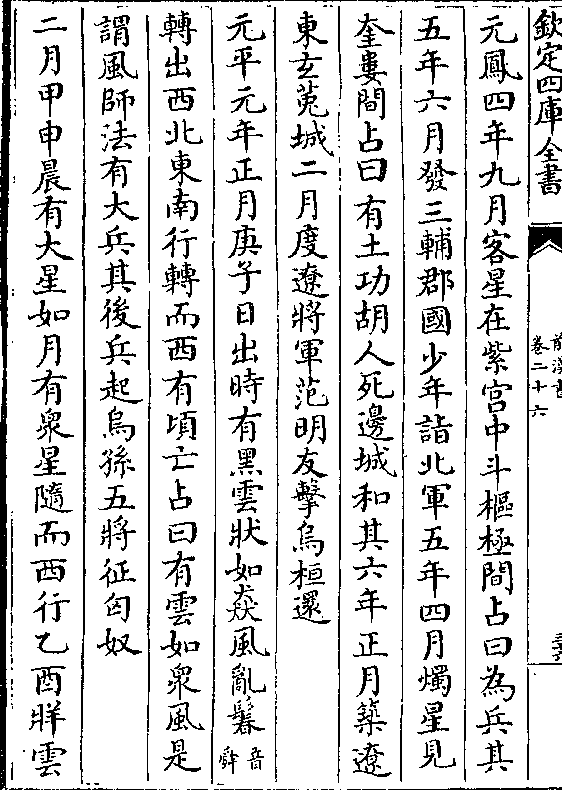 欽定四庫全書
前漢書
卷二十六
元鳳四年九月客星在紫宫中斗樞極間占曰為兵其
五年六月發三輔郡國少年詣北軍五年四月燭星見
奎婁間占曰有土功胡人死邊城和其六年正月築遼
東玄菟城二月度遼將軍范明友擊烏桓還
元平元年正月庚子日出時有黑雲狀如猋風亂鬊音舜
轉出西北東南行轉而西有頃亡占曰有雲如衆風是
謂風師法有大兵其後兵起烏孫五將征匈奴
二月甲申晨有大星如月有衆星隨而西行乙酉牂雲